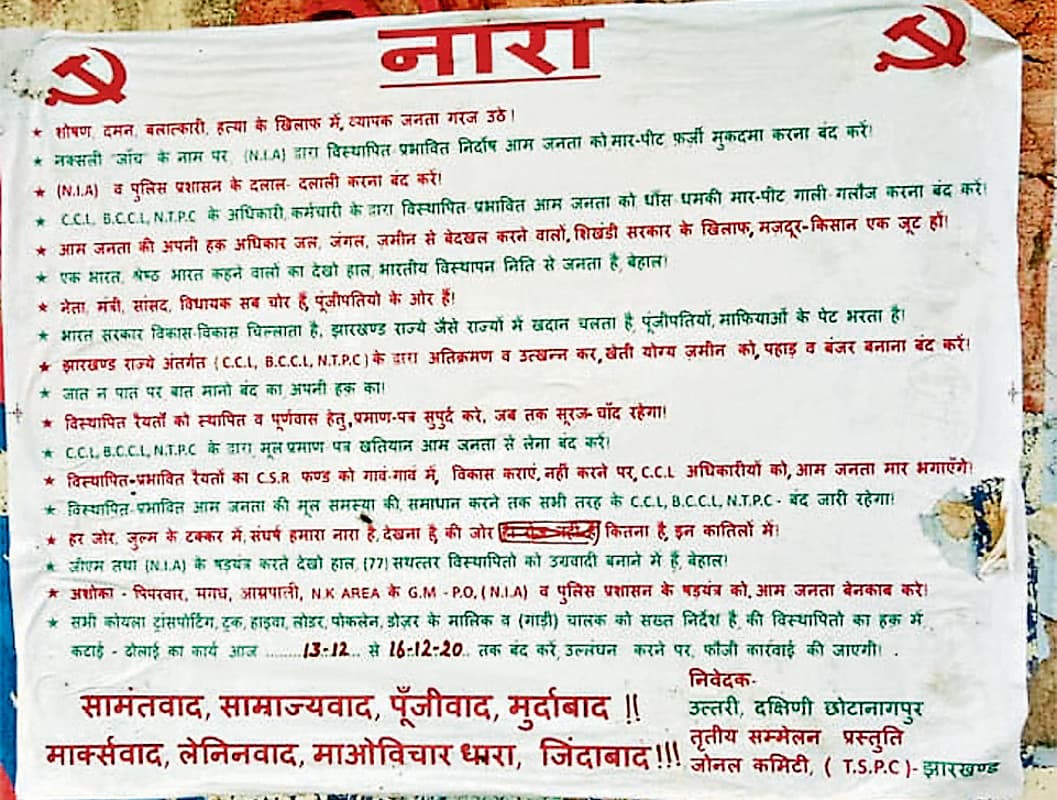 नारा
★ शोषण, दमन, बलात्कारी, हत्या के खिलाफ में, व्यापक जनता गरज उठे!
★ नक्सली "जाँच" के नाम पर (N.I.A) द्वारा विस्थापित-प्रभावित निर्दोष आम जनता को मार-पीट फ़र्ज़ी मुकदमा करना बंद करें!
★ (N.I.A) व पुलिस प्रशासन के दलाल- दलाली करना बंद करें!
★ C.C.L, B.C.C.L, N.T.P.C के अधिकारी, कर्मचारी के द्वारा विस्थापित-प्रभावित आम जनता को धौंस धमकी मार-पीट गाली गलौज करना बंद करें!
★ आम जनता की अपनी हक़ अधिकार जल, जंगल, ज़मीन से बेदखल करने वालों, शिखंडी सरकार के खिलाफ, मज़दूर-किसान एक जूट हों!
★ एक भारत, श्रेष्ठ भारत कहने वालों का देखो हाल, भारतीय विस्थापन निति से जनता है, बेहाल!
★ नेता, मंत्री, सांसद, विधायक सब चोर हैं, पूंजीपतियो के ओर हैं!
★ भारत सरकार विकास-विकास चिल्लाता है, झारखण्ड राज्ये जैसे राज्यों में खदान चलता है, पूंजीपतियों, माफियाओं के पेट भरता है!
★ झारखण्ड राज्ये अंतर्गत (C.C.L, B.C.C.L, N.T.P.C) के द्वारा अतिक्रमण व उत्खन्न कर, खेती योग्य ज़मीन को, पहाड़ व बंजर बनाना बंद करें!
★ जात न पात पर बात मानो बंद का, अपनी हक़ का!
★ विस्थापित रैयतों को स्थापित व पूर्णवास हेतु, प्रमाण-पत्र सुपुर्द करे, जब तक सूरज-चाँद रहेगा!
★ C.C.L, B.C.C.L, N.T.P.C के द्वारा, मूल प्रमाण पत्र खतियान आम जनता से लेना बंद करें!
★ विस्थापित-प्रभावित रैयतों का C.S.R फण्ड को गावं-गावं में, विकास कराएं, नहीं करने पर, C.C.L अधिकारीयों को, आम जनता मार भगाएँगे!
★ विस्थापित-प्रभावित आम जनता की मूल समस्या की, समाधान करने तक सभी तरह के C.C.L, B.C.C.L, N.T.P.C - बंद जारी रहेगा!
★ हर जोर, जुल्म के टक्कर में, संघर्ष हमारा नारा है, देखना है की जोर कितना है, इन कातिलों में!
★ जीएम तथा (N.I.A) के षड़यंत्र करते देखो हाल, (77) सथत्तर विस्थापितो को उग्रवादी बनाने में हैं, बेहाल!
★ अशोका - पिपरवार, मगध, आम्रपाली, N.K AREA के G.M - P.O, (N.I.A) व पुलिस प्रशासन के षड़यंत्र को, आम जनता बेनकाब करे!
★ सभी कोयला ट्रांसपोर्टिंग, ट्रक, हाइवा, लोडर, पोकलेन, डोज़र के मालिक व (गाड़ी) चालक को सख्त निर्देश है, की विस्थापितो का हक़ में,
कटाई - ढोलाई का कार्य आज ........13-12... से 16-12-20.. तक बंद करें, उल्लंघन करने पर, फौजी कार्रवाई की जाएगी! .
सामंतवाद, साम्राज्यवाद, पूँजीवाद, मुर्दाबाद !!
मार्क्सवाद, लेनिनवाद, माओविचार धारा, जिंदाबाद!!!
निवेदक-
उत्तरी, दक्षिणी छोटानागपुर
तृतीय सम्मेलन प्रस्तुति
जोनल कमिटी, ( T.S.P.C )- झारखण्ड